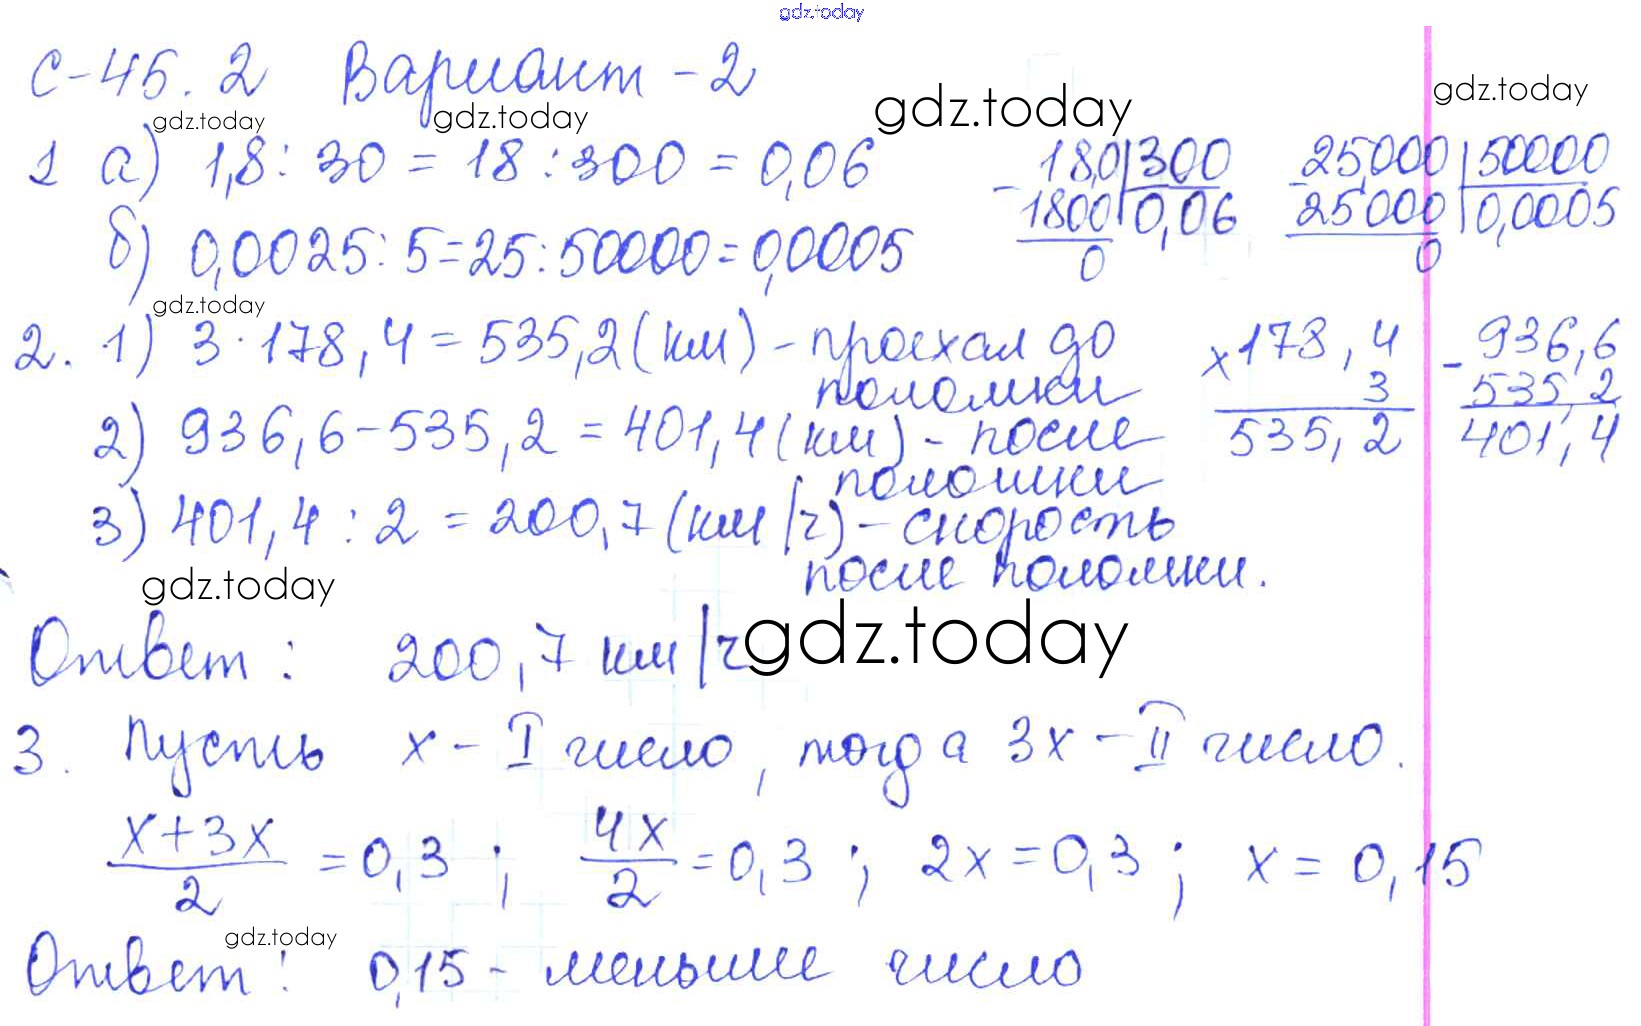 gdz.today
С-45.2 Вариант - 2
gdz.today gdz.today gdz.today gdz.today
1 а) 1,8 : 30 = 18 : 300 = 0,06
- 18,0 | 300
1800 | 0,06
0
- 25,000 | 50000
25000 | 0,0005
0
б) 0,0025 : 5 = 25 : 50000 = 0,0005
gdz.today
2. 1) 3 · 178,4 = 535,2 (км) - проехал до
поломки
× 178,4
3
535,2
- 936,6
535,2
401,4
2) 936,6 - 535,2 = 401,4 (км) - после
поломки
3) 401,4 : 2 = 200,7 (км/ч) - скорость
после поломки.
gdz.today
Ответ: 200,7 км/ч
gdz.today
3. Пусть х - I число, тогда 3х - II число.
х+3х/2 = 0,3 ; 4х/2 = 0,3 ; 2х = 0,3 ; х = 0,15
gdz.today
Ответ: 0,15 - меньшее число